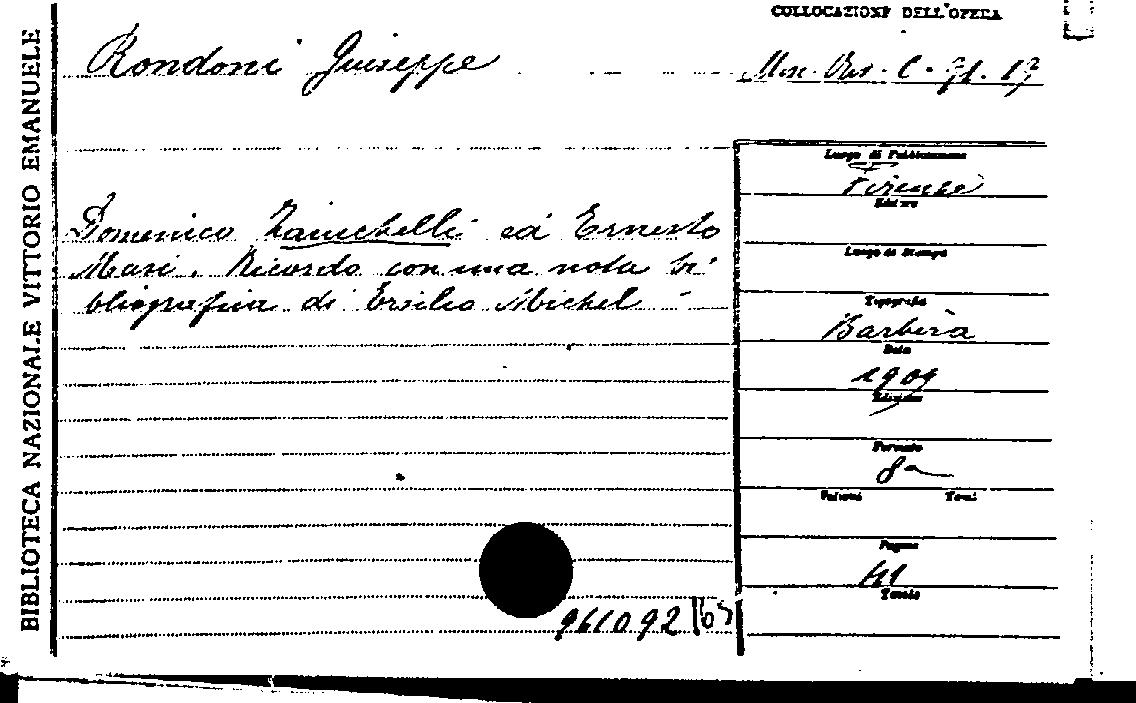 COLLOCAZIONE DELL'OPERA
Rondoni Giuseppe
Misc. Ris. C. 71. 17
BIBLIOTECA NAZIONALE VITTORIO EMANUELE
Domenico Zanichelli ed Ernesto
Masi. Ricordo con una nota bi
bliografica di Ersilio Michel -
Luogo di Pubblicazione
Firenze
Editore
Luogo di Stampa
Tipografia
Barbèra
Data
1909
Edizione
Formato
8º
Volumi Tomi
Pagine
41
Tavole
961092